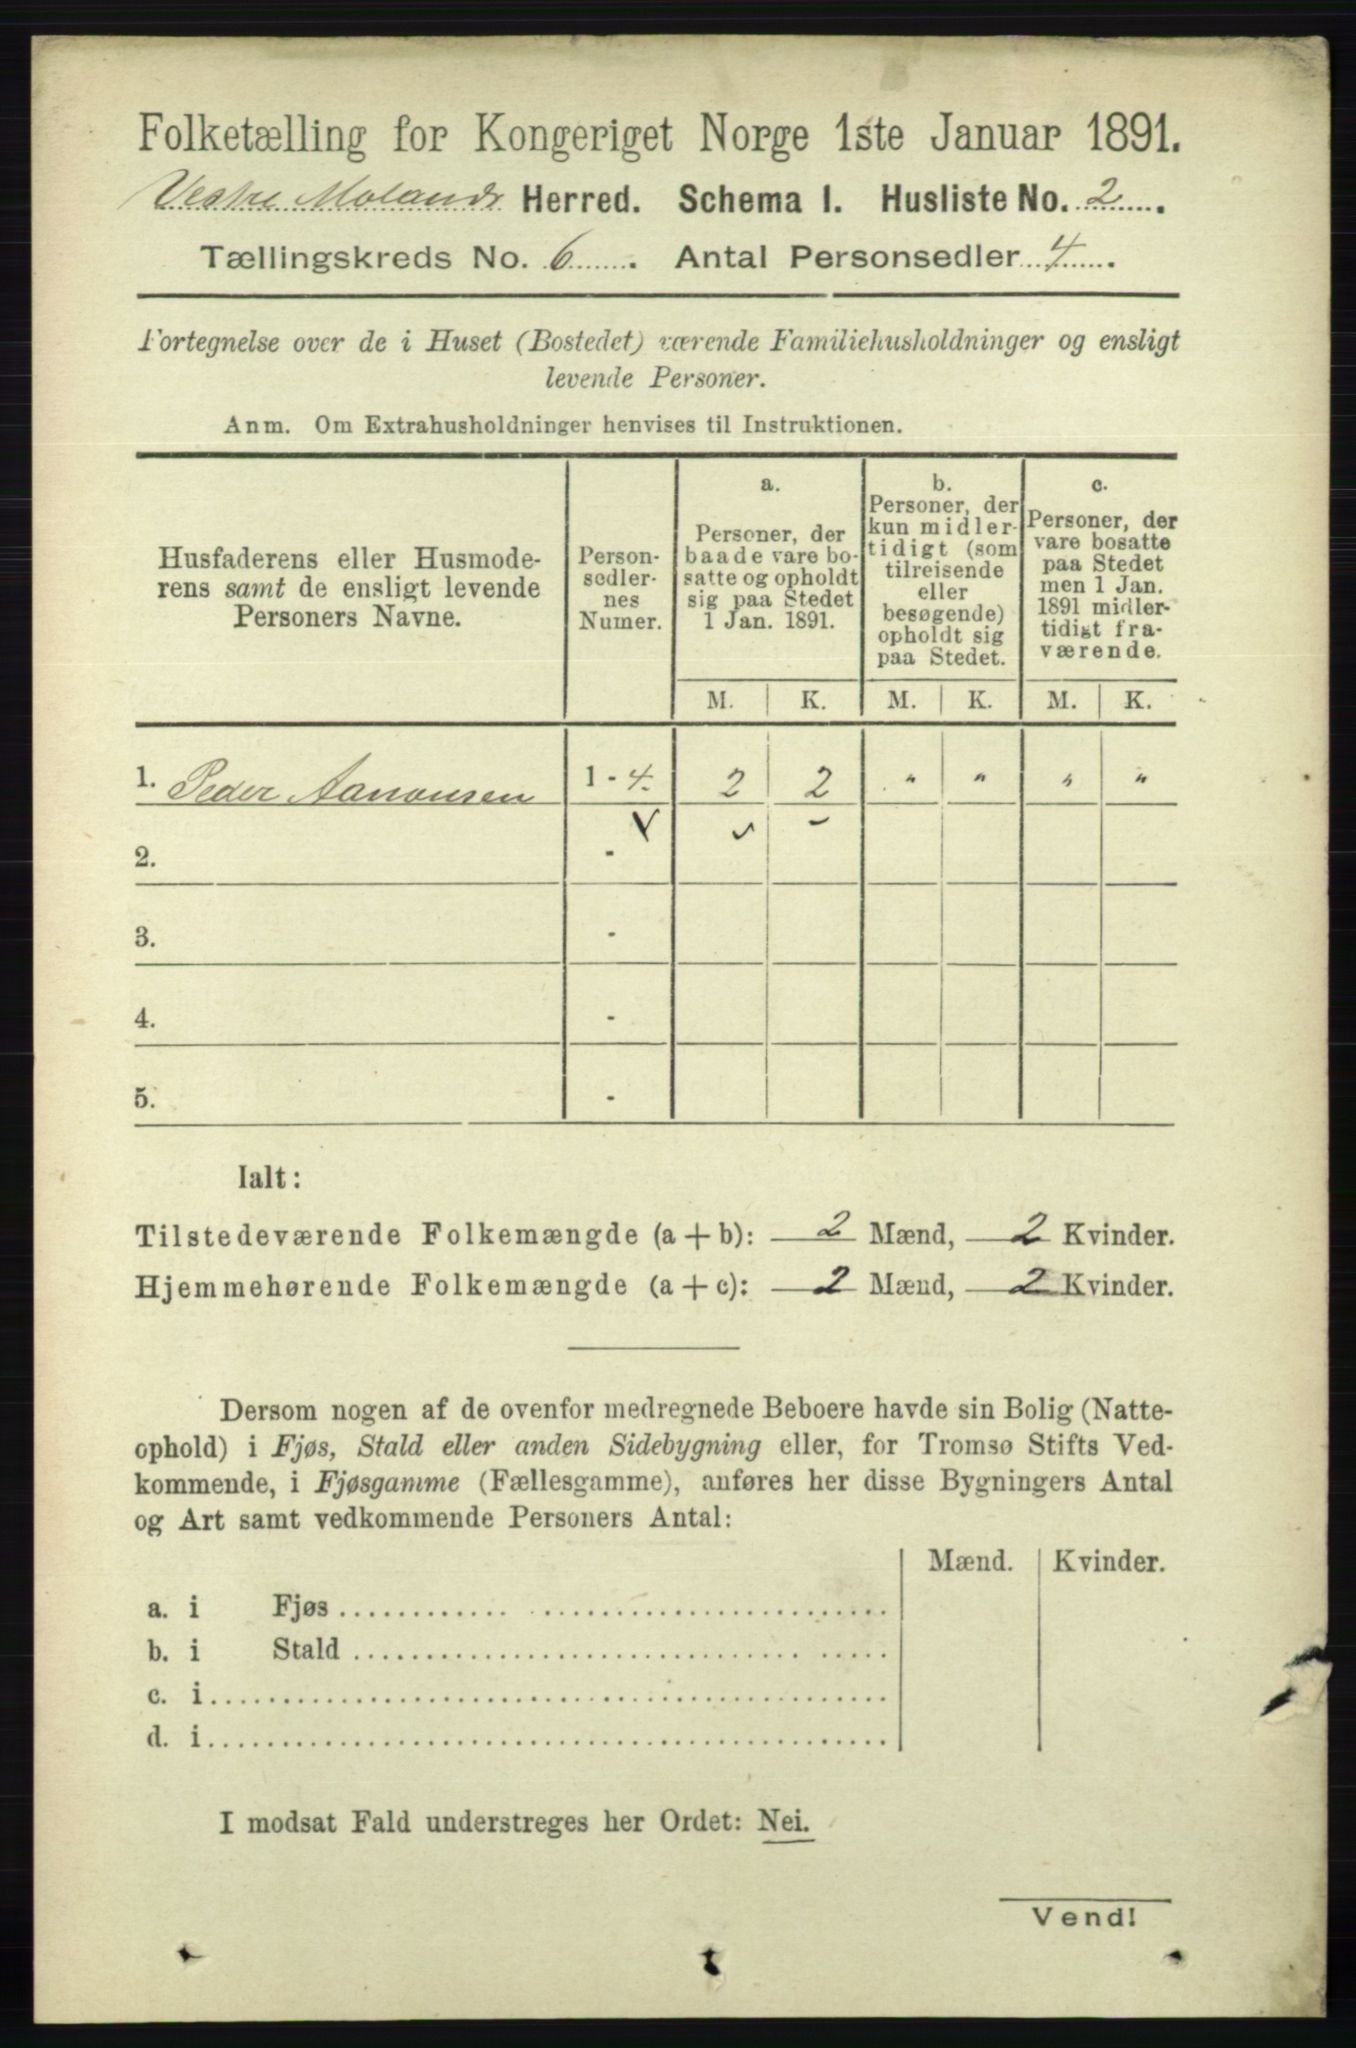 Folketælling for Kongeriget Norge 1ste Januar 1891.
Vestre Molands Herred. Schema I. Husliste No. 2.
Tællingskreds No. 6. Antal Personsedler 4.
Fortegnelse over de i Huset (Bostedet) værende Familiehusholdninger og ensligt
levende Personer.
Anm. Om Extrahusholdninger henvises til Instruktionen.
Husfaderens eller Husmode-
rens samt de ensligt levende
Personers Navne.
Person-
sedler-
nes
Numer.
a.
Personer, der
baade vare bo-
satte og opholdt
sig paa Stedet
1 Jan. 1891.
b.
Personer, der
kun midler-
tidigt (som
tilreisende
eller
besøgende)
opholdt sig
paa Stedet.
c.
Personer, der
vare bosatte
paa Stedet
men 1 Jan.
1891 midler-
tidigt fra-
værende.
M. K. M. K. M. K.
1. Peder Aanonsen 1 - 4. 2 2 " " " "
2. -
3. -
4. -
5. -
Ialt:
Tilstedeværende Folkemængde (a + b): 2 Mænd, 2 Kvinder.
Hjemmehørende Folkemængde (a + c): 2 Mænd, 2 Kvinder.
Dersom nogen af de ovenfor medregnede Beboere havde sin Bolig (Natte-
ophold) i Fjøs, Stald eller anden Sidebygning eller, for Tromsø Stifts Ved-
kommende, i Fjøsgamme (Fællesgamme), anføres her disse Bygningers Antal
og Art samt vedkommende Personers Antal:
Mænd. Kvinder.
a. i Fjøs
b. i Stald
c. i
d. i
I modsat Fald understreges her Ordet: Nei.
Vend!